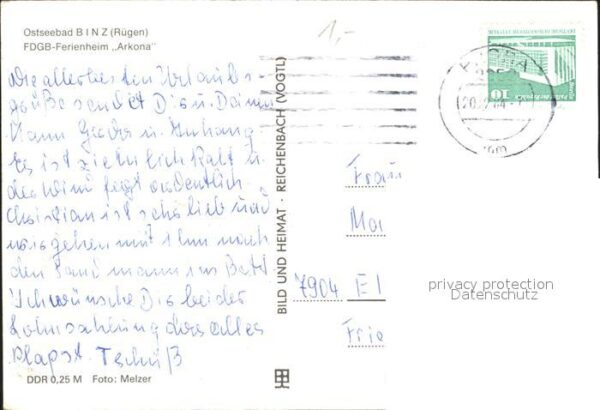 Ostseebad B I N Z (Rügen)
FDGB-Ferienheim „Arkona"
1,-
Die allerbesten Urlaubs-
grüße sendet Dir u. Deinem
Mann Gerda u. Anhang
Es ist ziemlich kalt u.
der Wind fegt ordentlich
Christian ist sehr lieb und
wir gehen mit ihm nach
den Sandmann ins Bett.
Ich wünsche Dir bei der
Lohnzahlung das alles
klappt. Tschüß
DDR 0,25 M Foto: Melzer
BILD UND HEIMAT · REICHENBACH (VOGTL)
10
Frau
7904 El
privacy protection
Datenschutz